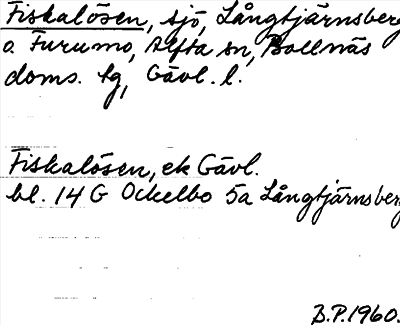 Fiskalösen, sjö, Långtjärnsberg
o. Furumo, Alfta sn, Bollnäs
doms. tg, Gävl. l.
Fiskalösen, ek Gävl.
bl. 14 G Ockelbo 5a Långtjärnsberg
B.P. 1960.